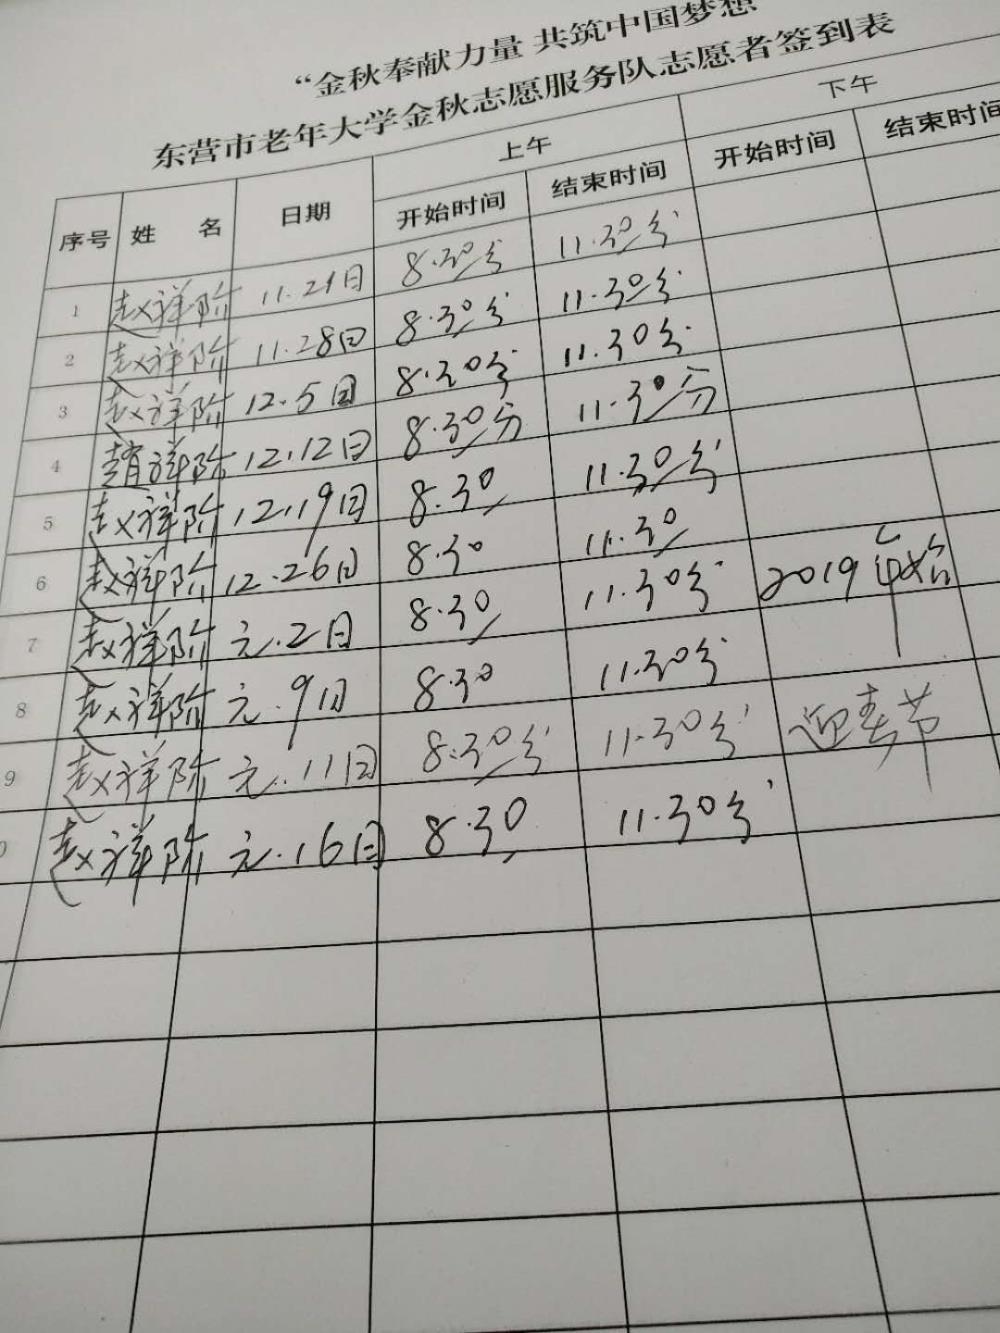 “金秋奉献力量 共筑中国梦想
东营市老年大学金秋志愿服务队志愿者签到表
序号 姓 名 日期 上午 下午
开始时间 结束时间 开始时间 结束时间
1 赵祥阶 11.21日 8.30分 11.30分
2 赵祥阶 11.28日 8.30分 11.30分
3 赵祥阶 12.5日 8.30分 11.30分
4 趙祥阶 12.12日 8.30分 11.30分
5 赵祥阶 12.19日 8.30 11.30分
6 赵祥阶 12.26日 8.30 11.30
7 赵祥阶 元.2日 8.30 11.30分 2019年始
8 赵祥阶 元.9日 8.30 11.30分
9 赵祥阶 元.11日 8.30分 11.30分 迎春节
0 赵祥阶 元.16日 8.30 11.30分